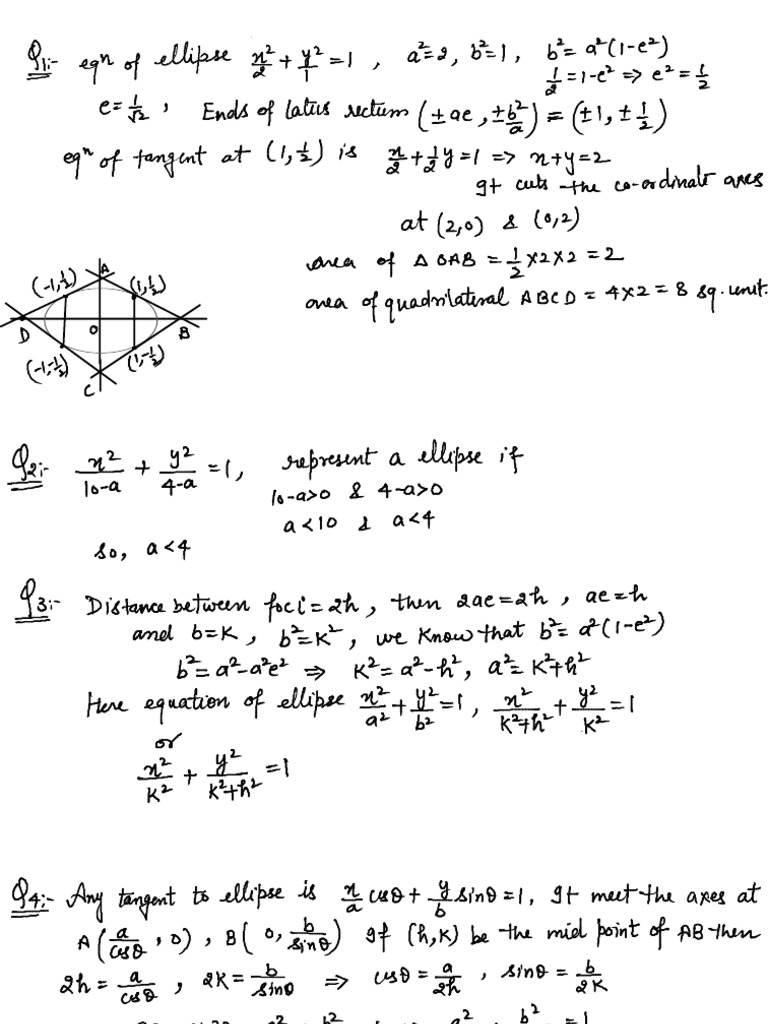 Q1:- eqⁿ of ellipse x²/2 + y²/1 = 1, a²=2, b²=1, b²= a²(1-e²)
1/2 = 1-e² => e² = 1/2
e = 1/√2, Ends of latus rectum (±ae, ±b²/a) = (±1, ±1/2)
eqⁿ of tangent at (1, 1/2) is x/2 + 1/2 y = 1 => x+y=2
It cuts the co-ordinate axes
at (2,0) & (0,2)
area of Δ OAB = 1/2 x2x2 = 2
area of quadrilateral ABCD = 4x2 = 8 sq. unit.
A
(-1, 1/2) (1, 1/2)
D O B
(-1, -1/2) (1, -1/2)
C
Q2:- x²/10-a + y²/4-a = 1, represent a ellipse if
10-a>0 & 4-a>0
a<10 & a<4
so, a<4
Q3:- Distance between foci = 2h, then 2ae = 2h, ae = h
and b=K, b²=K², we know that b² = a²(1-e²)
b² = a²-a²e² => K² = a²-h², a² = K²+h²
Here equation of ellipse x²/a² + y²/b² = 1, x²/K²+h² + y²/K² = 1
or
x²/K² + y²/K²+h² = 1
Q4:- Any tangent to ellipse is x/a cosθ + y/b sinθ = 1, It meet the axes at
A(a/cosθ, 0), B(0, b/sinθ) If (h,K) be the mid point of AB then
2h = a/cosθ, 2K = b/sinθ => cosθ = a/2h, sinθ = b/2K